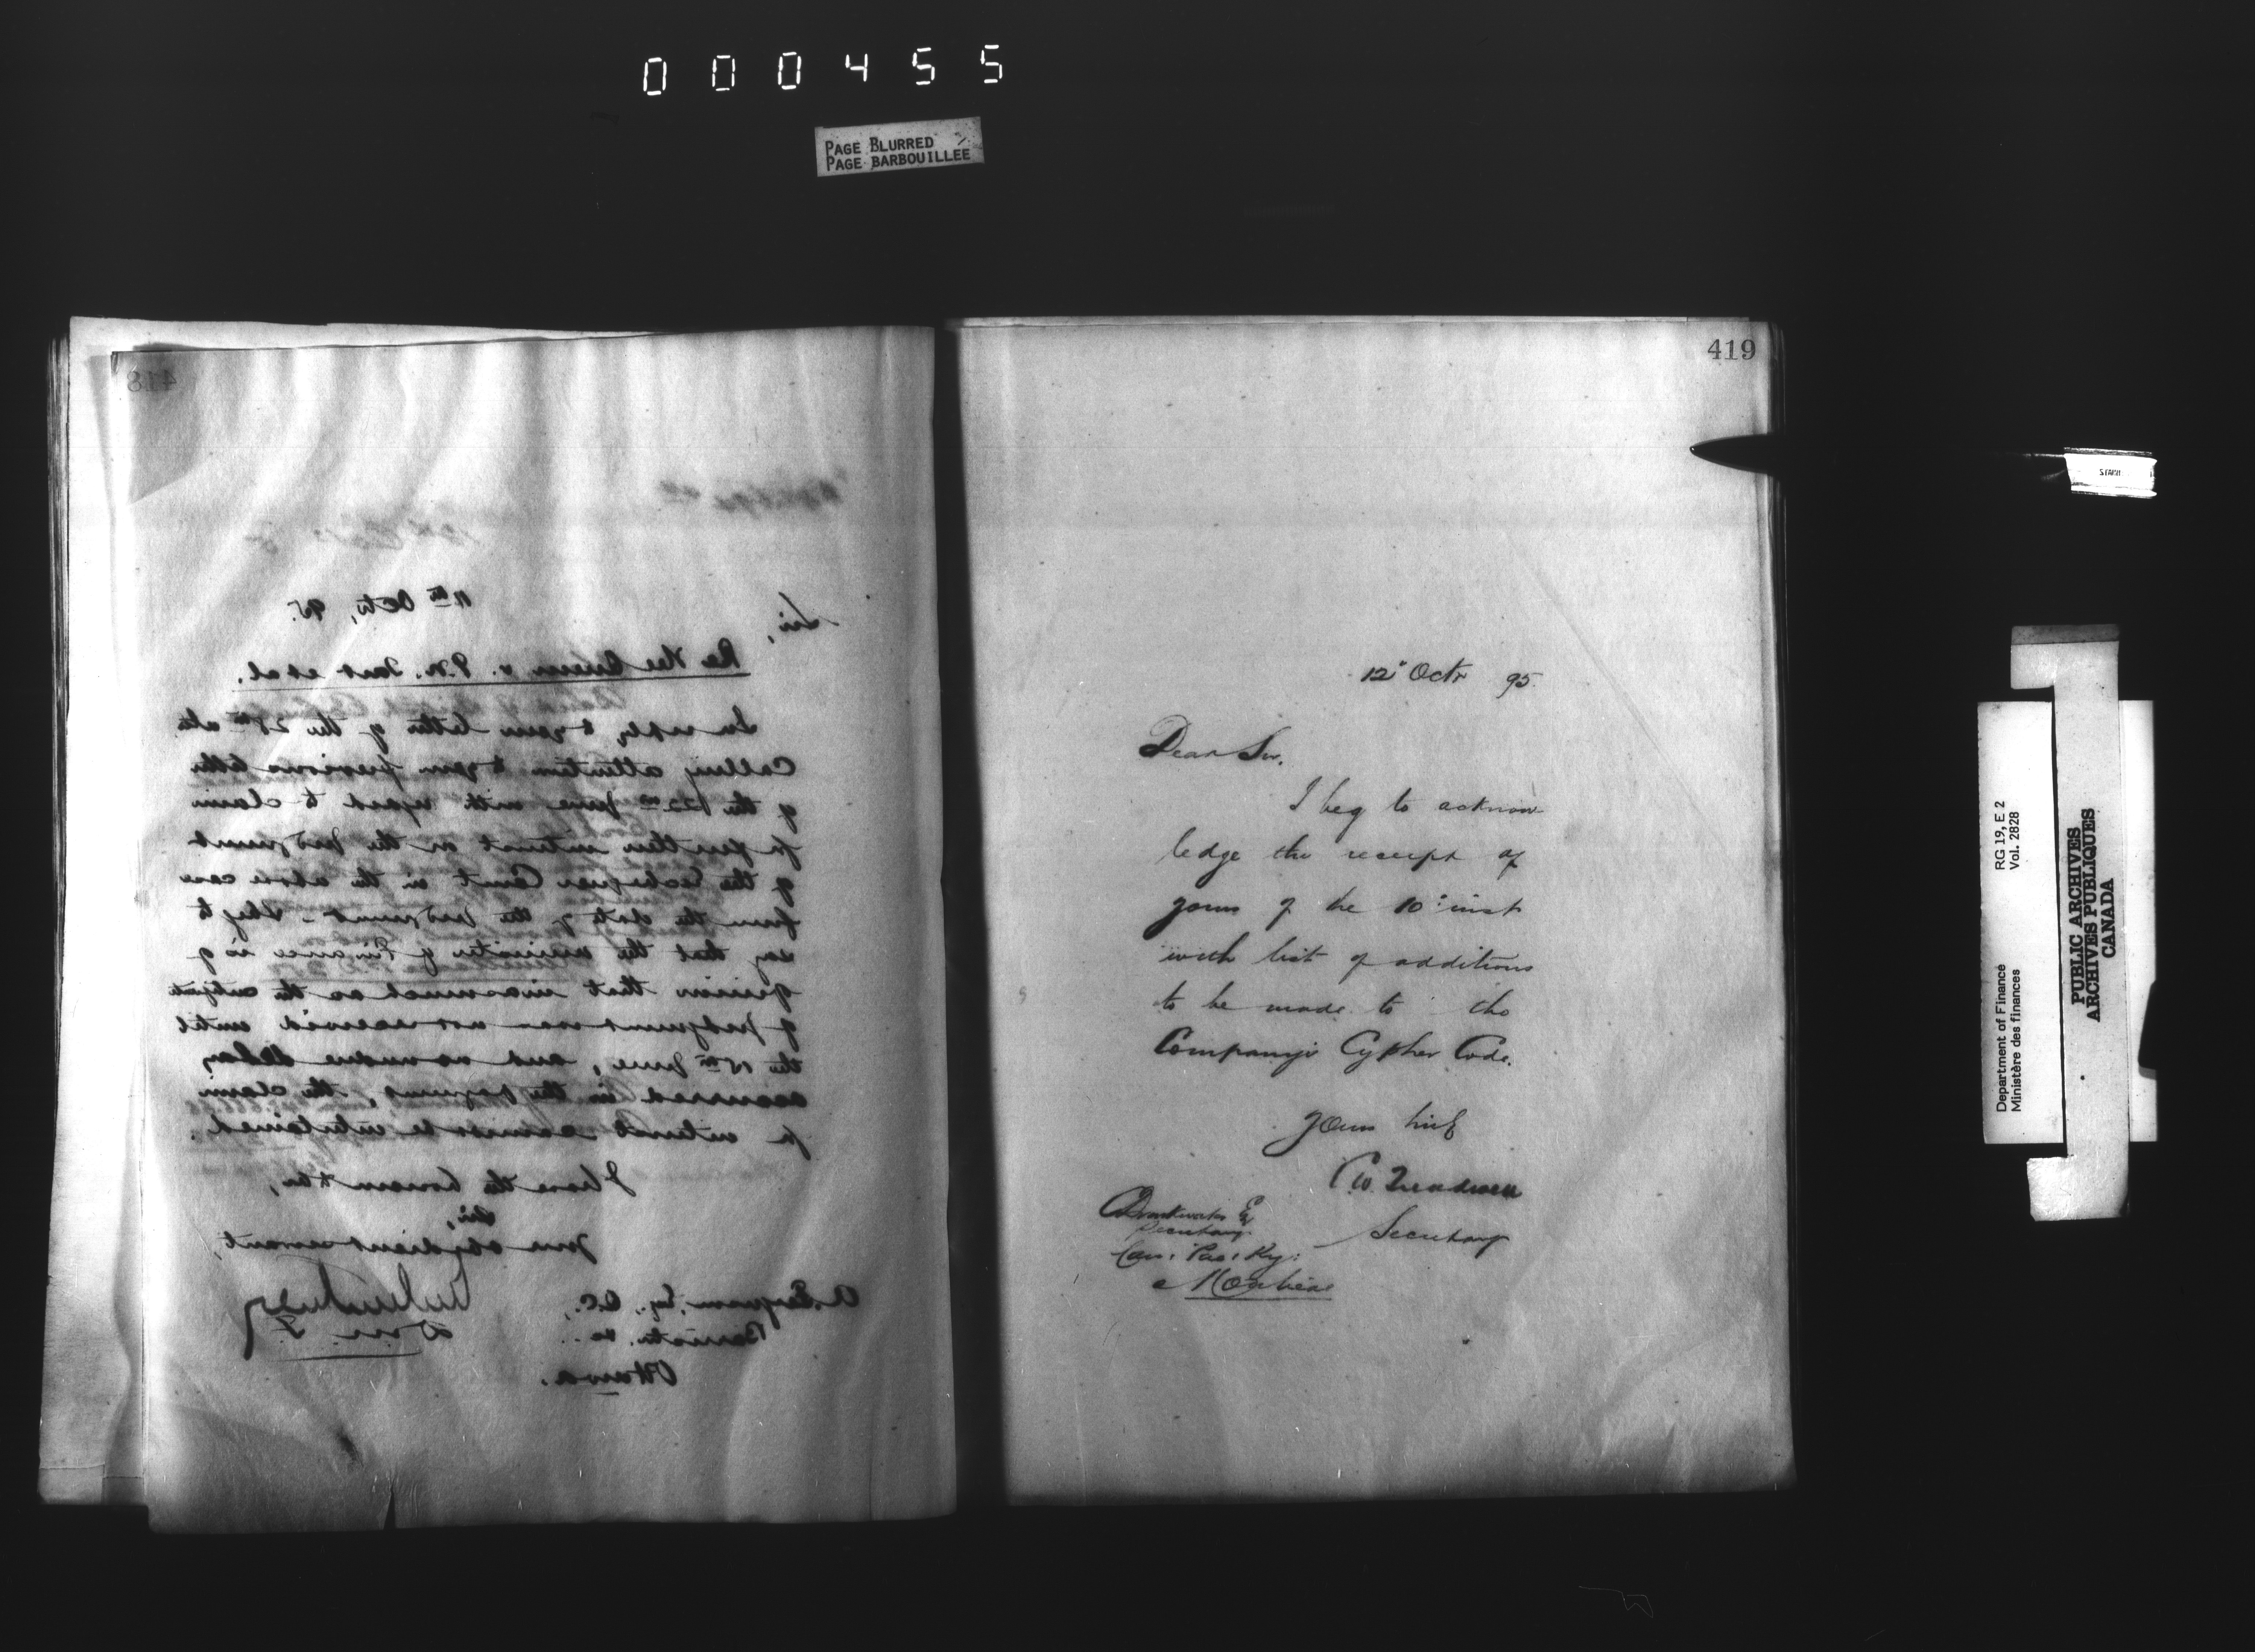 000455
PAGE BLURRED
PAGE BARBOUILLEE
418
11th Octr, 95.
Sir,
Re The Queen v. P.N. et al.
In reply to your letter of the 28th ulto
Calling attention to your previous letter
of the 22nd June with regard to claim
for further interest on the Judgment
of the Exchequer Court in the above case
from the date of the Judgment I beg to
say that the Minister of Finance is of
opinion that inasmuch as the
of Judgment was not received until
the 15th June, and no undue delay
occurred in the payment, the claim
for interest cannot be entertained.
I have the honour to be,
Sir,
Your obedient servant,
D.M.F.
A. Ferguson, Esq., Q.C.,
Barrister &c.
Ottawa.
419
12" Octr 95.
Dear Sir.
I beg to acknow
ledge the receipt of
yours of the 10" inst
with list of additions
to be made to the
Company's Cypher Code.
Yours truly
C W. Treadwell
Secretary
C Drinkwater Esq
Secretary
Can: Pac: Ry:
Montreal
Department of Finance
Ministère des finances
RG 19, E 2
Vol. 2828
PUBLIC ARCHIVES
ARCHIVES PUBLIQUES
CANADA